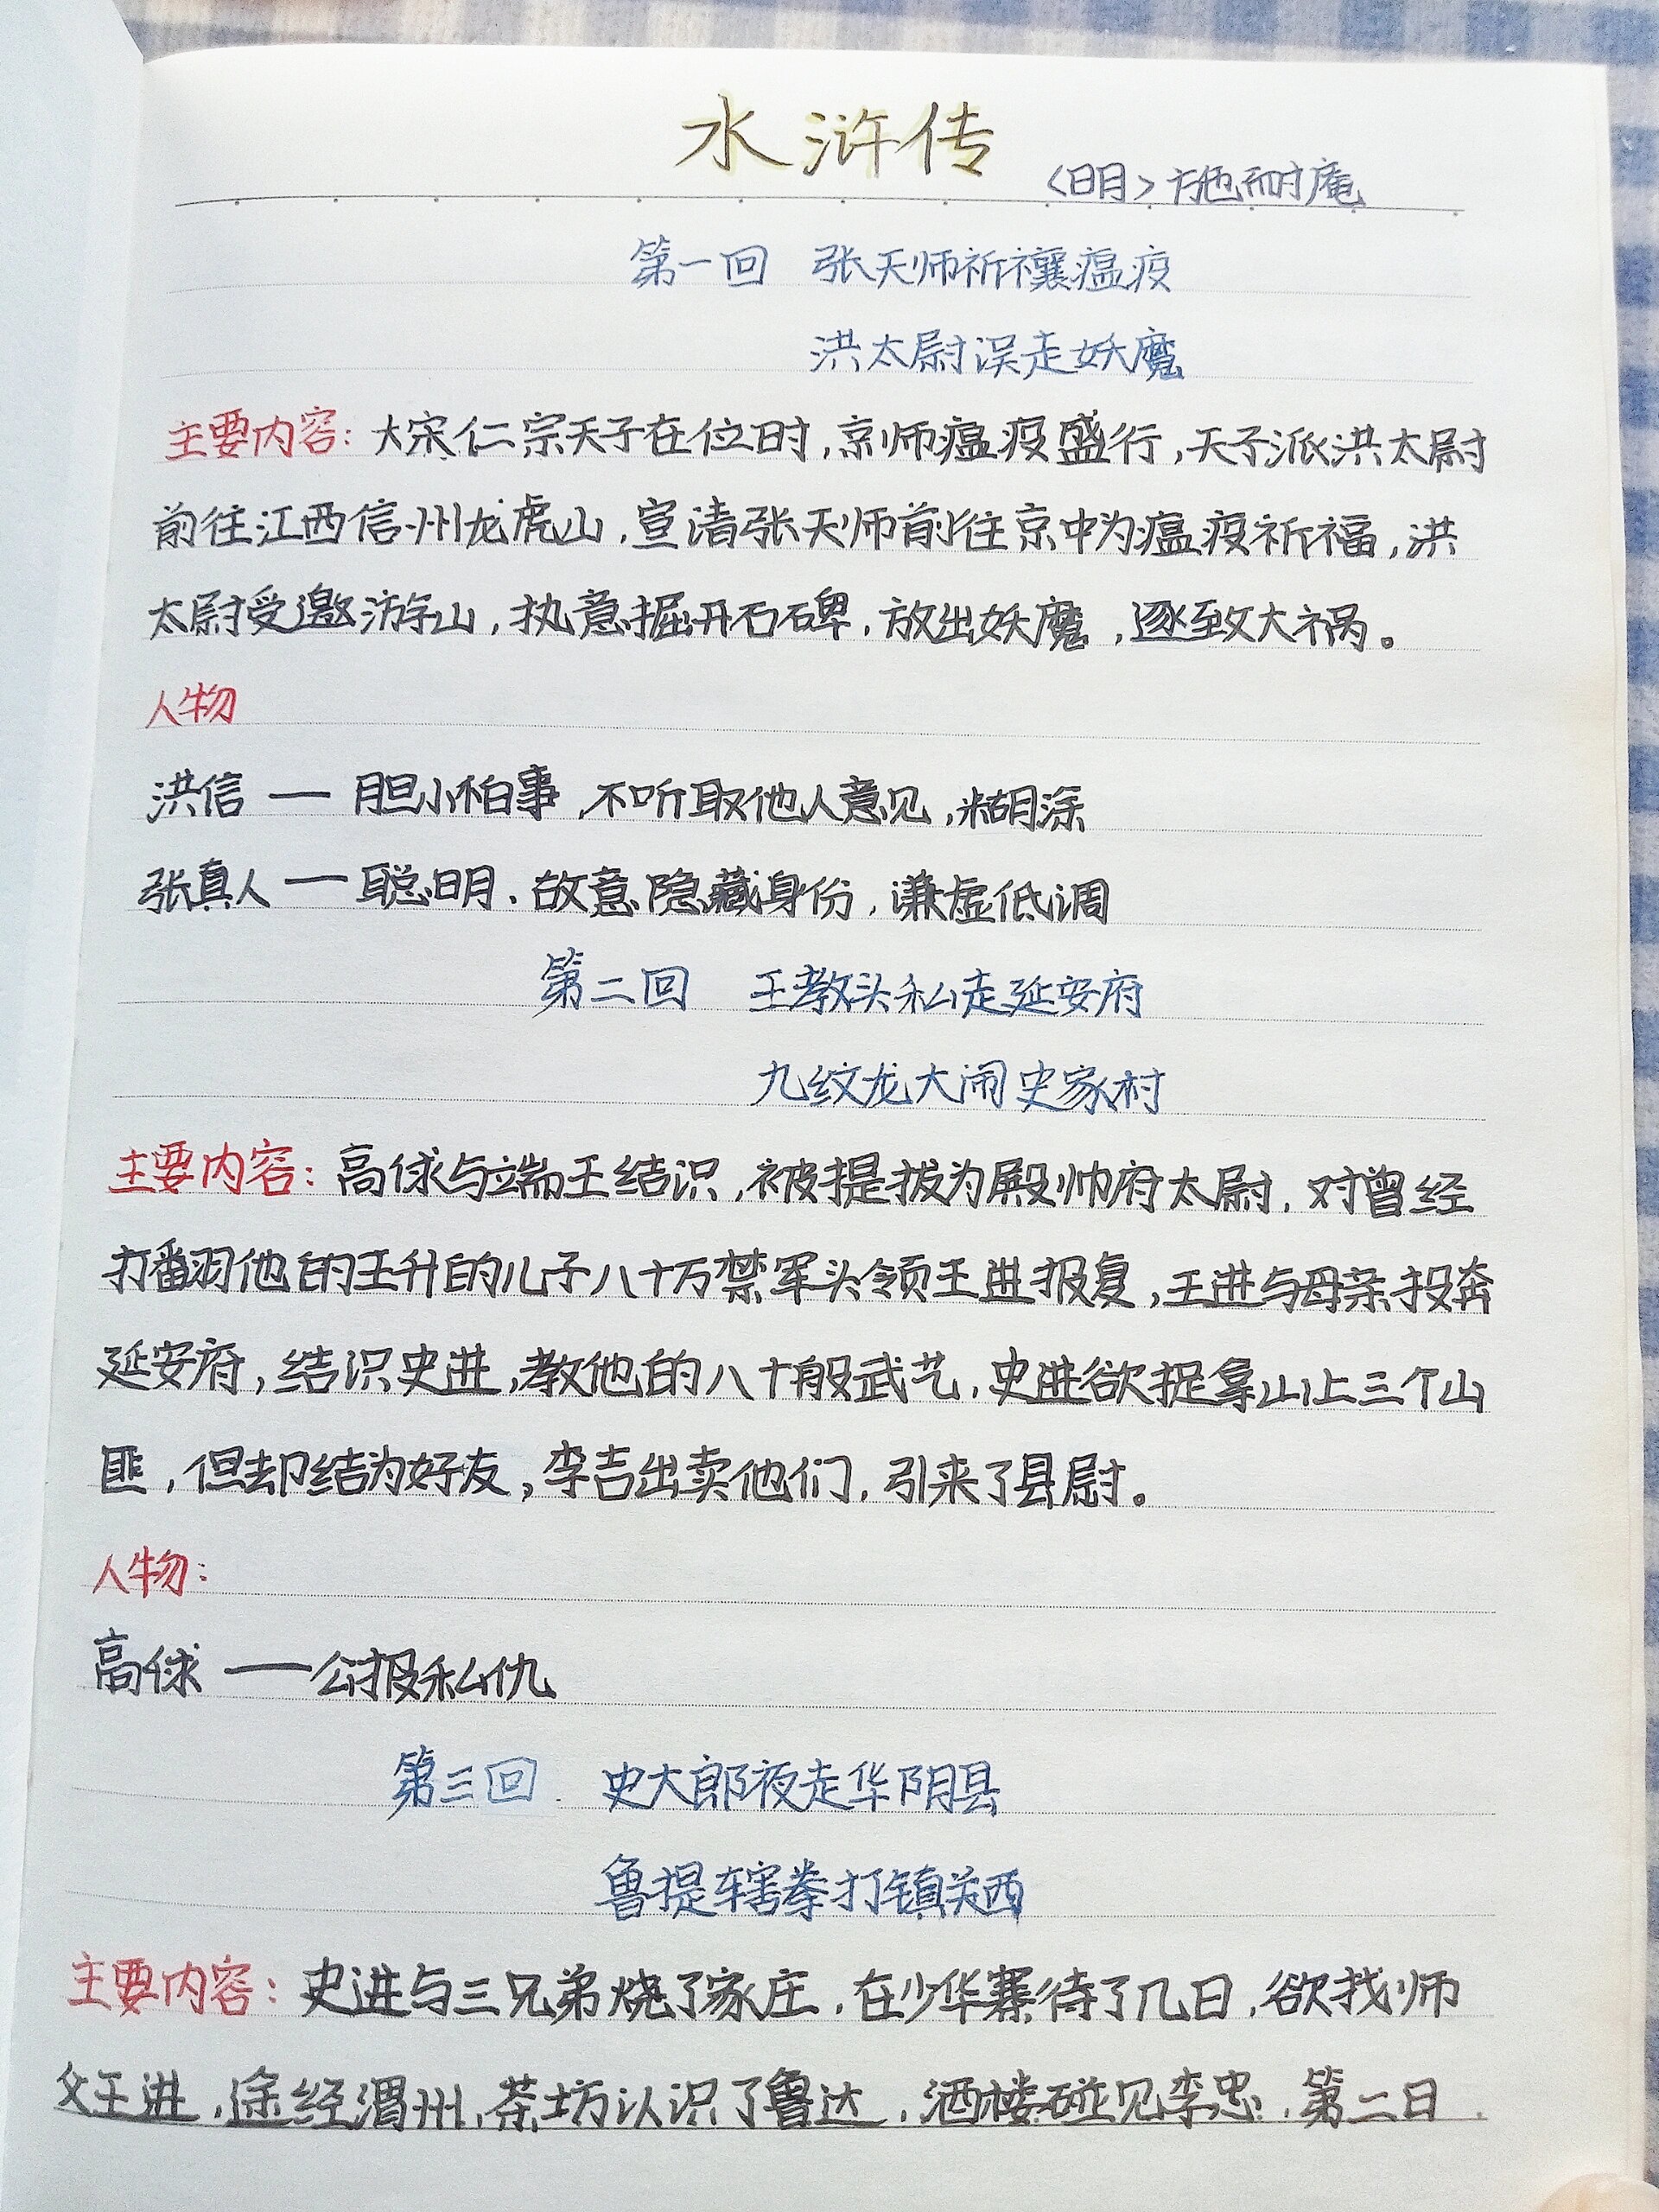 水浒传
〈明〉施耐庵
第一回 张天师祈禳瘟疫
洪太尉误走妖魔
主要内容：大宋仁宗天子在位时，京师瘟疫盛行，天子派洪太尉
前往江西信州龙虎山，宣请张天师前往京中为瘟疫祈福，洪
太尉受邀游山，执意掘开石碑，放出妖魔，逐致大祸。
人物
洪信——胆小怕事，不听取他人意见，糊涂
张真人——聪明、故意隐藏身份，谦虚低调
第二回 王教头私走延安府
九纹龙大闹史家村
主要内容：高俅与端王结识，被提拔为殿帅府太尉，对曾经
打翻他的王升的儿子八十万禁军头领王进报复，王进与母亲投奔
延安府，结识史进，教他的八十般武艺，史进欲捉拿山上三个山
匪，但却结为好友，李吉出卖他们，引来了县尉。
人物：
高俅——公报私仇
第三回 史大郎夜走华阴县
鲁提辖拳打镇关西
主要内容：史进与三兄弟烧了家庄，在少华寨待了几日，欲找师
父王进，途经渭州，茶坊认识了鲁达，酒楼碰见李忠，第二日